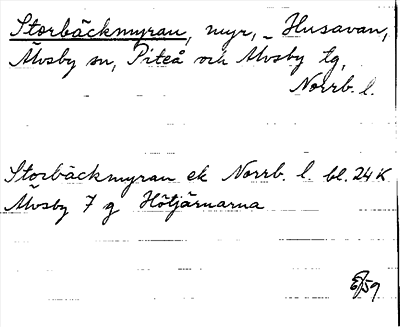 Storbäckmyran, myr, - Husavan,
Älvsby sn, Piteå och Älvsby tg,
Norrb. l.
Storbäckmyran ek Norrb. l. bl. 24 K
Älvsby 7 g Hötjärnarna
/59